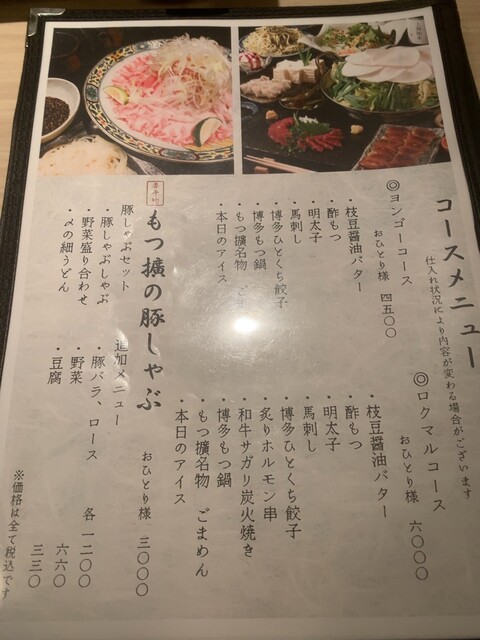 コースメニュー
仕入れ状況により内容が変わる場合がございます
◎ヨンゴーコース
おひとり様 四五〇〇
・枝豆醤油バター
・酢もつ
・明太子
・馬刺し
・博多ひとくち餃子
・博多もつ鍋
・もつ擴名物 ごま
・本日のアイス
◎ロクマルコース
おひとり様 六〇〇〇
・枝豆醤油バター
・酢もつ
・明太子
・馬刺し
・博多ひとくち餃子
・炙りホルモン串
・和牛サガリ炭火焼き
・博多もつ鍋
・もつ擴名物 ごまめん
・本日のアイス
もつ擴の豚しゃぶ
おひとり様 三〇〇〇
豚しゃぶセット
・豚しゃぶしゃぶ
・野菜盛り合わせ
・〆の細うどん
追加メニュー
・豚バラ、ロース 各 一二〇〇
・野菜 六六〇
・豆腐 三三〇
※価格は全て税込です